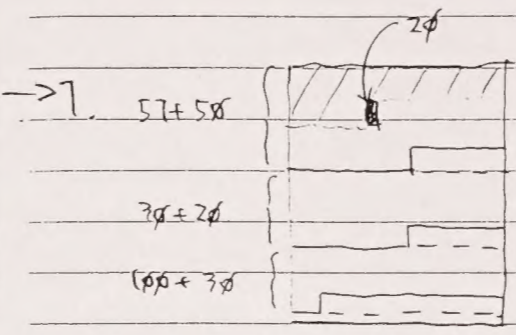 2φ
→7. 57+5φ
3φ+2φ
1φφ+3φ